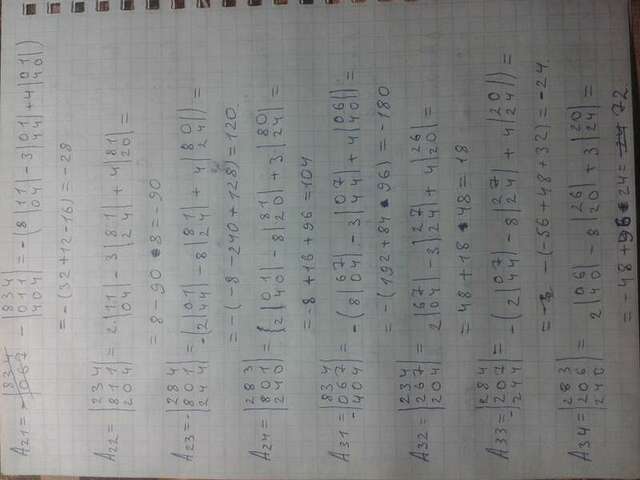 A21 = - |8 3 4; 0 1 1; 4 0 4| = -(8 |1 1; 0 4| - 3 |0 1; 4 4| + 4 |0 1; 4 0|)
= -(32 + 12 - 16) = -28
A22 = |2 3 4; 8 1 1; 2 0 4| = 2·|1 1; 0 4| - 3 |8 1; 2 4| + 4 |8 1; 2 0| =
= 8 - 90 - 8 = -90
A23 = - |2 8 4; 8 0 1; 2 4 4| = -(2 |0 1; 4 4| - 8 |8 1; 2 4| + 4 |8 0; 2 4|) =
= -(-8 - 240 + 128) = 120.
A24 = |2 8 3; 8 0 1; 2 4 0| = (2 |0 1; 4 0| - 8 |8 1; 2 0| + 3 |8 0; 2 4| =
= -8 + 16 + 96 = 104
A31 = - |8 3 4; 0 6 7; 4 0 4| = -(8 |6 7; 0 4| - 3 |0 7; 4 4| + 4 |0 6; 4 0|) =
= -(192 + 84 - 96) = -180
A32 = |2 3 4; 2 6 7; 2 0 4| = 2 |6 7; 0 4| - 3 |2 7; 2 4| + 4 |2 6; 2 0| =
= 48 + 18 - 48 = 18
A33 = - |2 8 4; 2 0 7; 2 4 4| = -(2 |0 7; 4 4| - 8 |2 7; 2 4| + 4 |2 0; 2 4|) =
= -(-56 + 48 + 32) = -24.
A34 = |2 8 3; 2 0 6; 2 4 0| = 2 |0 6; 4 0| - 8 |2 6; 2 0| + 3 |2 0; 2 4| =
= -48 + 96 24 = 72